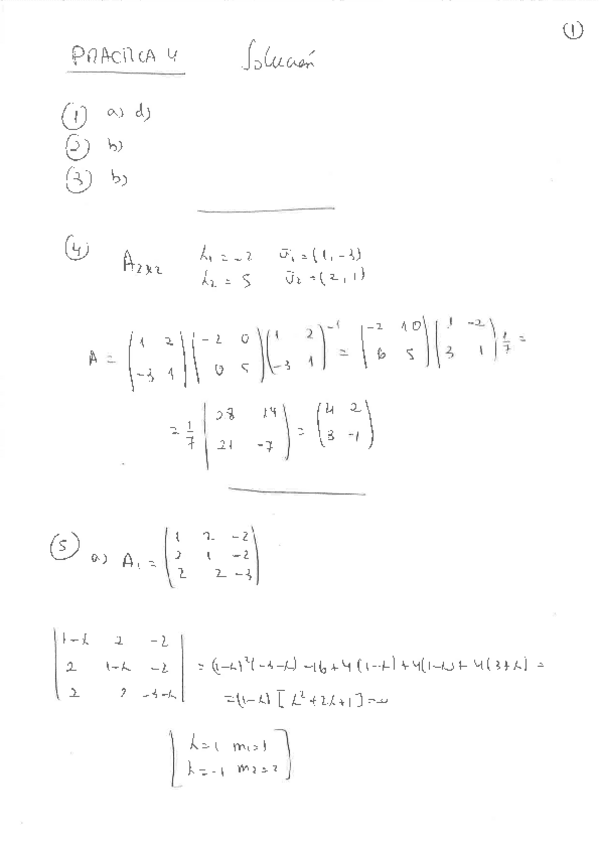 (1)
PRACTICA 4 Solución
(1) a) d)
(2) b)
(3) b)
(4) A2x2 λ1 = -2 v̄1 = (1, -3)
λ2 = 5 v̄2 = (2, 1)
A = (1 2; -3 1) (-2 0; 0 5) (1 2; -3 1)^-1 = (-2 10; 6 5) (1 -2; 3 1) 1/7 =
= 1/7 (28 14; 21 -7) = (4 2; 3 -1)
(5) a) A1 = (1 2 -2; 2 1 -2; 2 2 -3)
|1-λ 2 -2; 2 1-λ -2; 2 2 -3-λ| = (1-λ)²(-3-λ) -16 + 4(1-λ) + 4(1-λ) + 4(3+λ) =
= (1-λ) [λ² + 2λ + 1] = 0
[λ = 1 m1 = 1
λ = -1 m2 = 2]